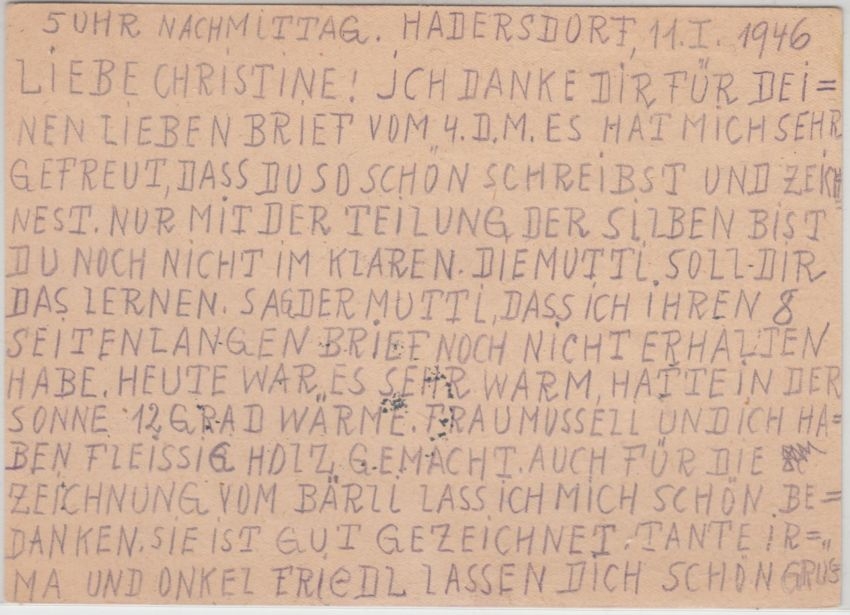 5 UHR NACHMITTAG. HADERSDORF, 11.I. 1946
LIEBE CHRISTINE! ICH DANKE DIR FÜR DEI=
NEN LIEBEN BRIEF VOM 4.D.M. ES HAT MICH SEHR
GEFREUT, DASS DU SO SCHÖN SCHREIBST UND ZEICH
NEST. NUR MIT DER TEILUNG DER SILBEN BIST
DU NOCH NICHT IM KLAREN. DIE MUTTI SOLL DIR
DAS LERNEN. SAG DER MUTTI, DASS ICH IHREN 8
SEITENLANGEN BRIEF NOCH NICHT ERHALTEN
HABE. HEUTE WAR ES SEHR WARM, HATTE IN DER
SONNE 12 GRAD WÄRME. FRAU MUSSELL UND ICH HA=
BEN FLEISSIG HOLZ GEMACHT. AUCH FÜR DIE
ZEICHNUNG VOM BÄRLL LASS ICH MICH SCHÖN BE=
DANKEN. SIE IST GUT GEZEICHNET. TANTE IR=
MA UND ONKEL FRIEDL LASSEN DICH SCHÖN GRÜS